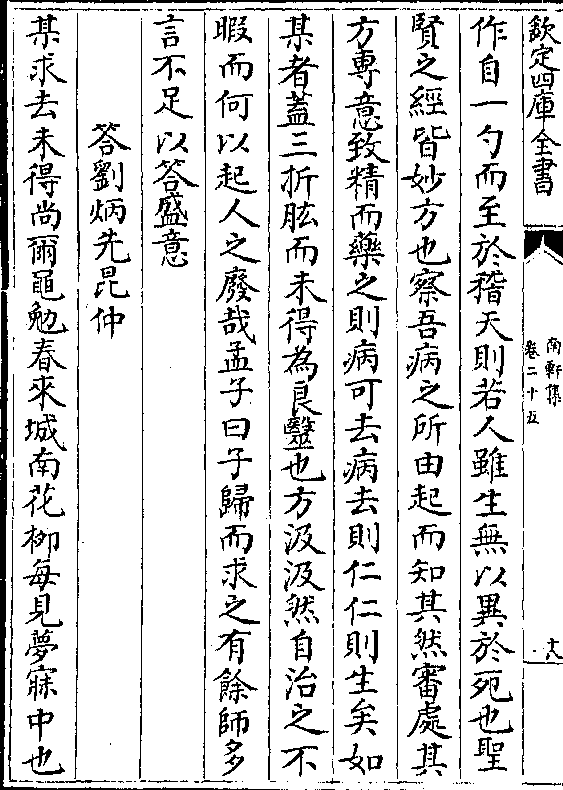 欽定四庫全書
南軒集
卷二十五
作自一勺而至於稽天則若人雖生無以異於死也聖
賢之經皆妙方也察吾病之所由起而知其然審處其
方專意致精而藥之則病可去病去則仁仁則生矣如
某者蓋三折肱而未得為良醫也方汲汲然自治之不
暇而何以起人之廢哉孟子曰子歸而求之有餘師多
言不足以答盛意
答劉炳先昆仲
某求去未得尚爾黽勉春來城南花柳每見夢寐中也